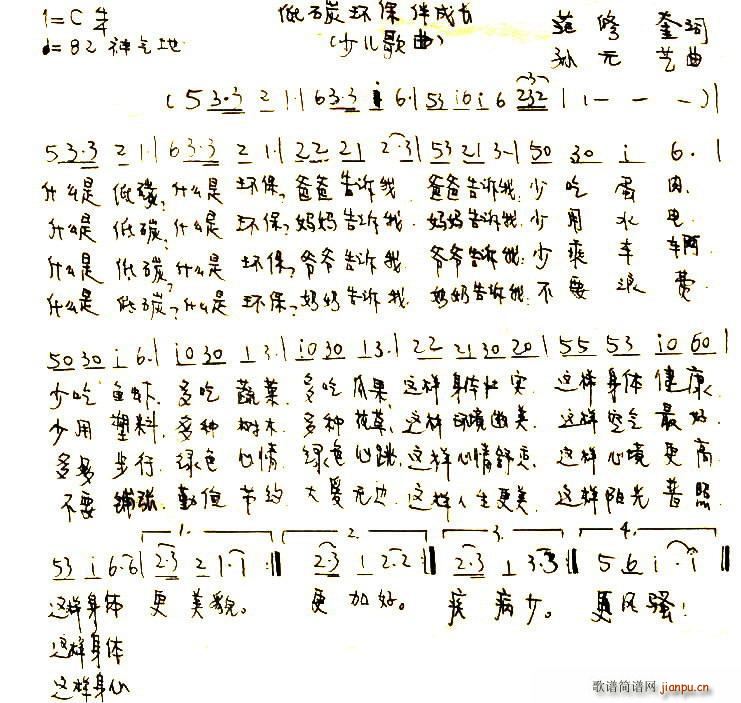 低碳环保伴成长
1=C
(少儿歌曲)
♩=82 神气地
孙元艺曲
(5 3·3 2 1·| 6 3·3 i 6·| 53 i0 i 6 232 | 1 — — — )|
5 3·3 2 1·| 6 3·3 2 1·| 22 21 2·3| 53 21 3·| 50 30 i 6·|
什么是 低碳,什么是 环保,爸爸告诉我 爸爸告诉我:少 吃 蛋 肉.
什么是 低碳,什么是 环保,妈妈告诉我 妈妈告诉我:少 用 水 电.
什么是 低碳,什么是 环保,爷爷告诉我 爷爷告诉我:少 乘 车 辆.
什么是 低碳?什么是 环保,奶奶告诉我 奶奶告诉我:不 要 浪 费.
50 30 i 6·| i0 30 1 3·| i0 30 1 3·| 22 21 30 20| 55 53 i0 60|
少吃 鱼虾. 多吃 蔬菜 多吃 瓜果,这样 身体壮实 这样身体 健康.
少用 塑料. 多种 树木. 多种 花草,这样 环境幽美. 这样空气 最好.
多多 步行. 绿色 心情 绿色 心跳,这样心情舒爽. 这样心境 更高
不要 铺张. 勤俭 节约 大爱无边,这样人生更美. 这样阳光 普照
1. 2. 3. 4.
53 i 6·6| 2·3 2 1·1 :‖ 2·3 1 2·2 :‖ 2·3 1 3·3 :‖ 5 6 i · i ‖
这样身体 更美貌。 更加好。 疾病少。 更风骚!
这样身体
这样身心
歌谱简谱网 jianpu.cn